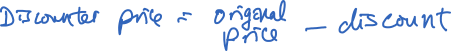 Discounter price = original price - discount